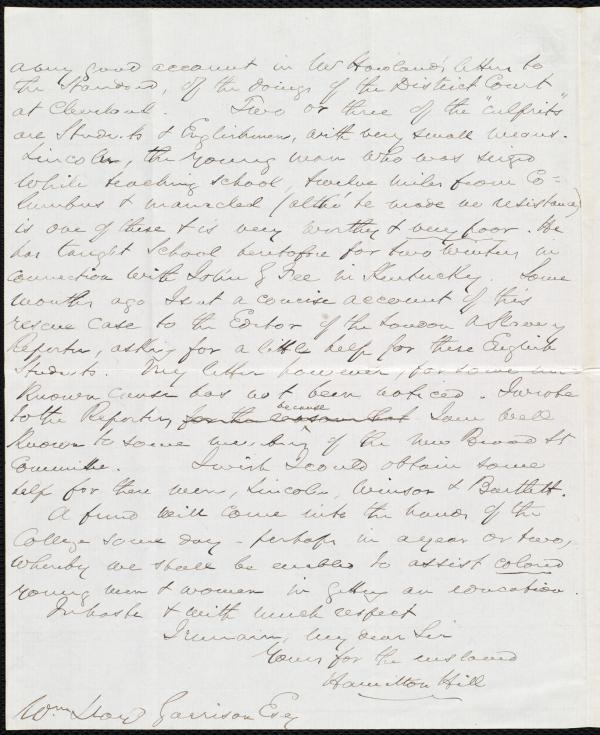 a very good account in Mr Howland's letters to
the Standard, of the doings of the District Court
at Cleveland. Two or three of the "culprits"
are Students & Englishmen, with very small means.
Lincoln, the young man who was seized
while teaching school, twelve miles from Co=
lumbus & manacled (altho' he made no resistance)
is one of these & is very worthy & very poor. He
has taught School heretofore for two winters in
connection with John G Fee in Kentucky. Some
months ago I sent a concise account of this
rescue case to the Editor of the London A Slavery
Reporter, asking for a little help for these English
Students. My letter however, for some un=
known cause has not been noticed. I wrote
to the Reporter for the reason that because I am well
known to some members of the New Broad St
Committee. I wish I could obtain some
help for these men, Lincoln, Winsor & Bartlett.
A fund will come into the hands of the
College some day - perhaps in a year or two,
whereby we shall be enabled to assist colored
young men & women in getting an education.
In haste & with much respect
I remain, my dear Sir
Yours for the enslaved
Hamilton Hill
Wm Lloyd Garrison Esq